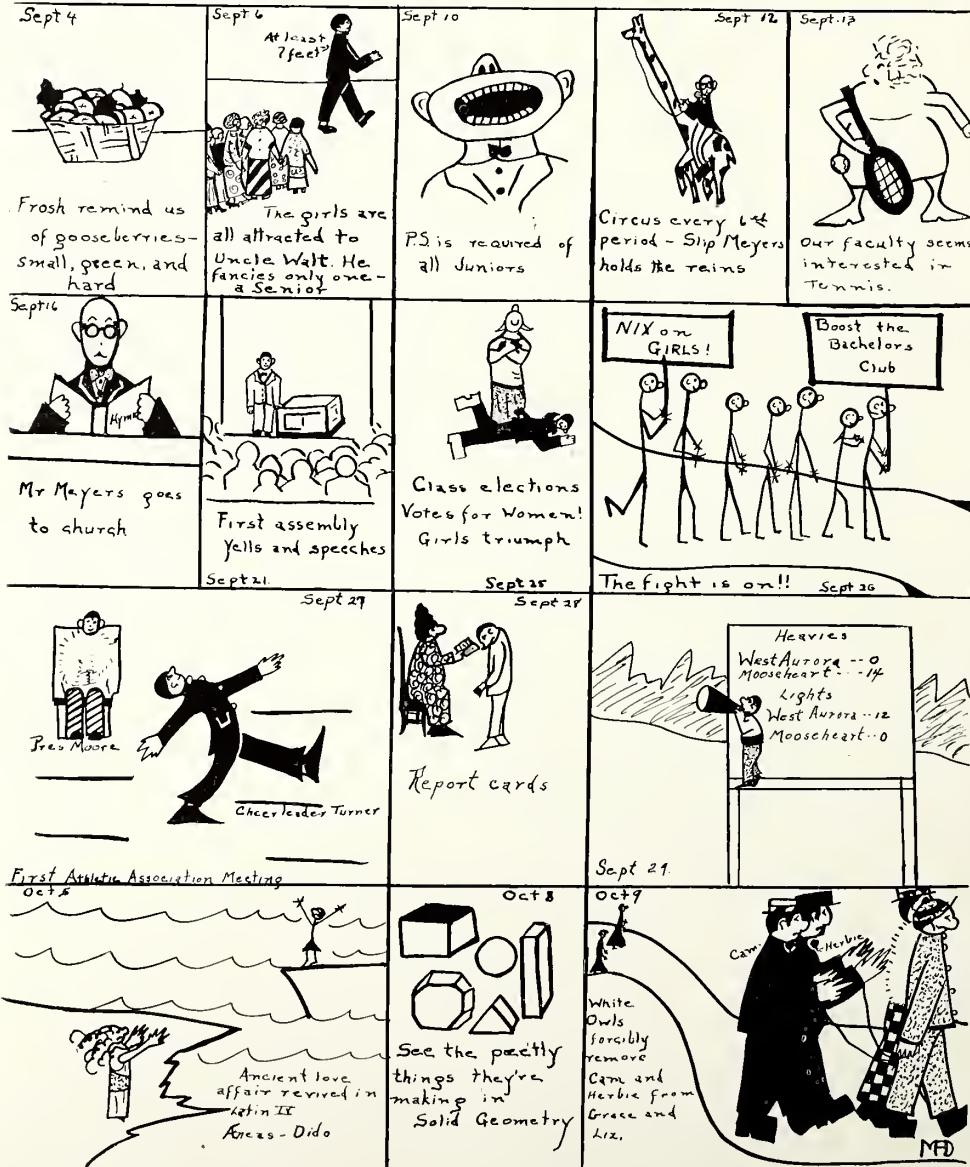 Sept 4
Frosh remind us
of gooseberries-
small, green, and
hard
Sept 6
At least
7 feet
The girls are
all attracted to
Uncle Walt. He
fancies only one-
a Senior
Sept 10
P.S. is required of
all Juniors
Sept 12
Circus every 6th
period - Slip Meyers
holds the reins
Sept. 13
Our faculty seems
interested in
Tennis.
Sept 16
Hymn
Mr Meyers goes
to church
First assembly
Yells and speeches
Sept 21.
Class elections
Votes for Women!
Girls triumph
Sept 25
NIX on
GIRLS!
Boost the
Bachelors
Club
The fight is on!!
Sept 26
Sept 27
Pres Moore
Cheerleader Turner
First Athletic Association Meeting
Sept 28
Report cards
Heavies
West Aurora -- 0
Mooseheart --- 14
Lights
West Aurora -- 12
Mooseheart -- 0
Sept 29
Oct 5
Ancient love
affair revived in
Latin IV
Æneas - Dido
Oct 8
See the pretty
things they're
making in
Solid Geometry
Oct 9
Cam
Herbie
White
Owls
forcibly
remove
Cam and
Herbie from
Grace and
Liz.